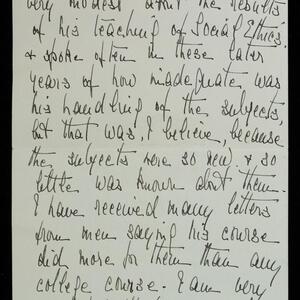 very modest about the results
of his teaching of Social Ethics,
& spoke often in these later
years of how inadequate was
his handling of the subjects,
but that was, I believe, because
the subjects were so new, & so
little was known about them.
I have received many letters
from men saying his course
did more for them than any
college course. I am very